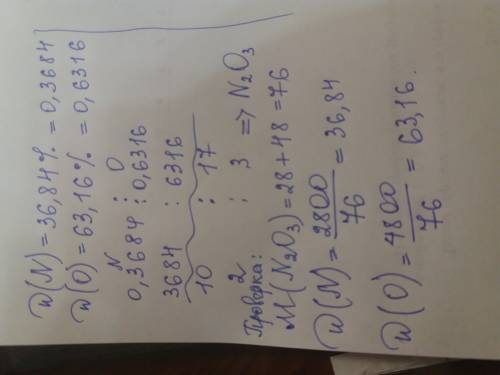 W(N) = 36,84% = 0,3684
W(O) = 63,16% = 0,6316
N O
0,3684 : 0,6316
3684 : 6316
10 : 17
2 : 3 => N₂O₃
Проверка:
M(N₂O₃) = 28 + 48 = 76
W(N) = 2800/76 = 36,84
W(O) = 4800/76 = 63,16.